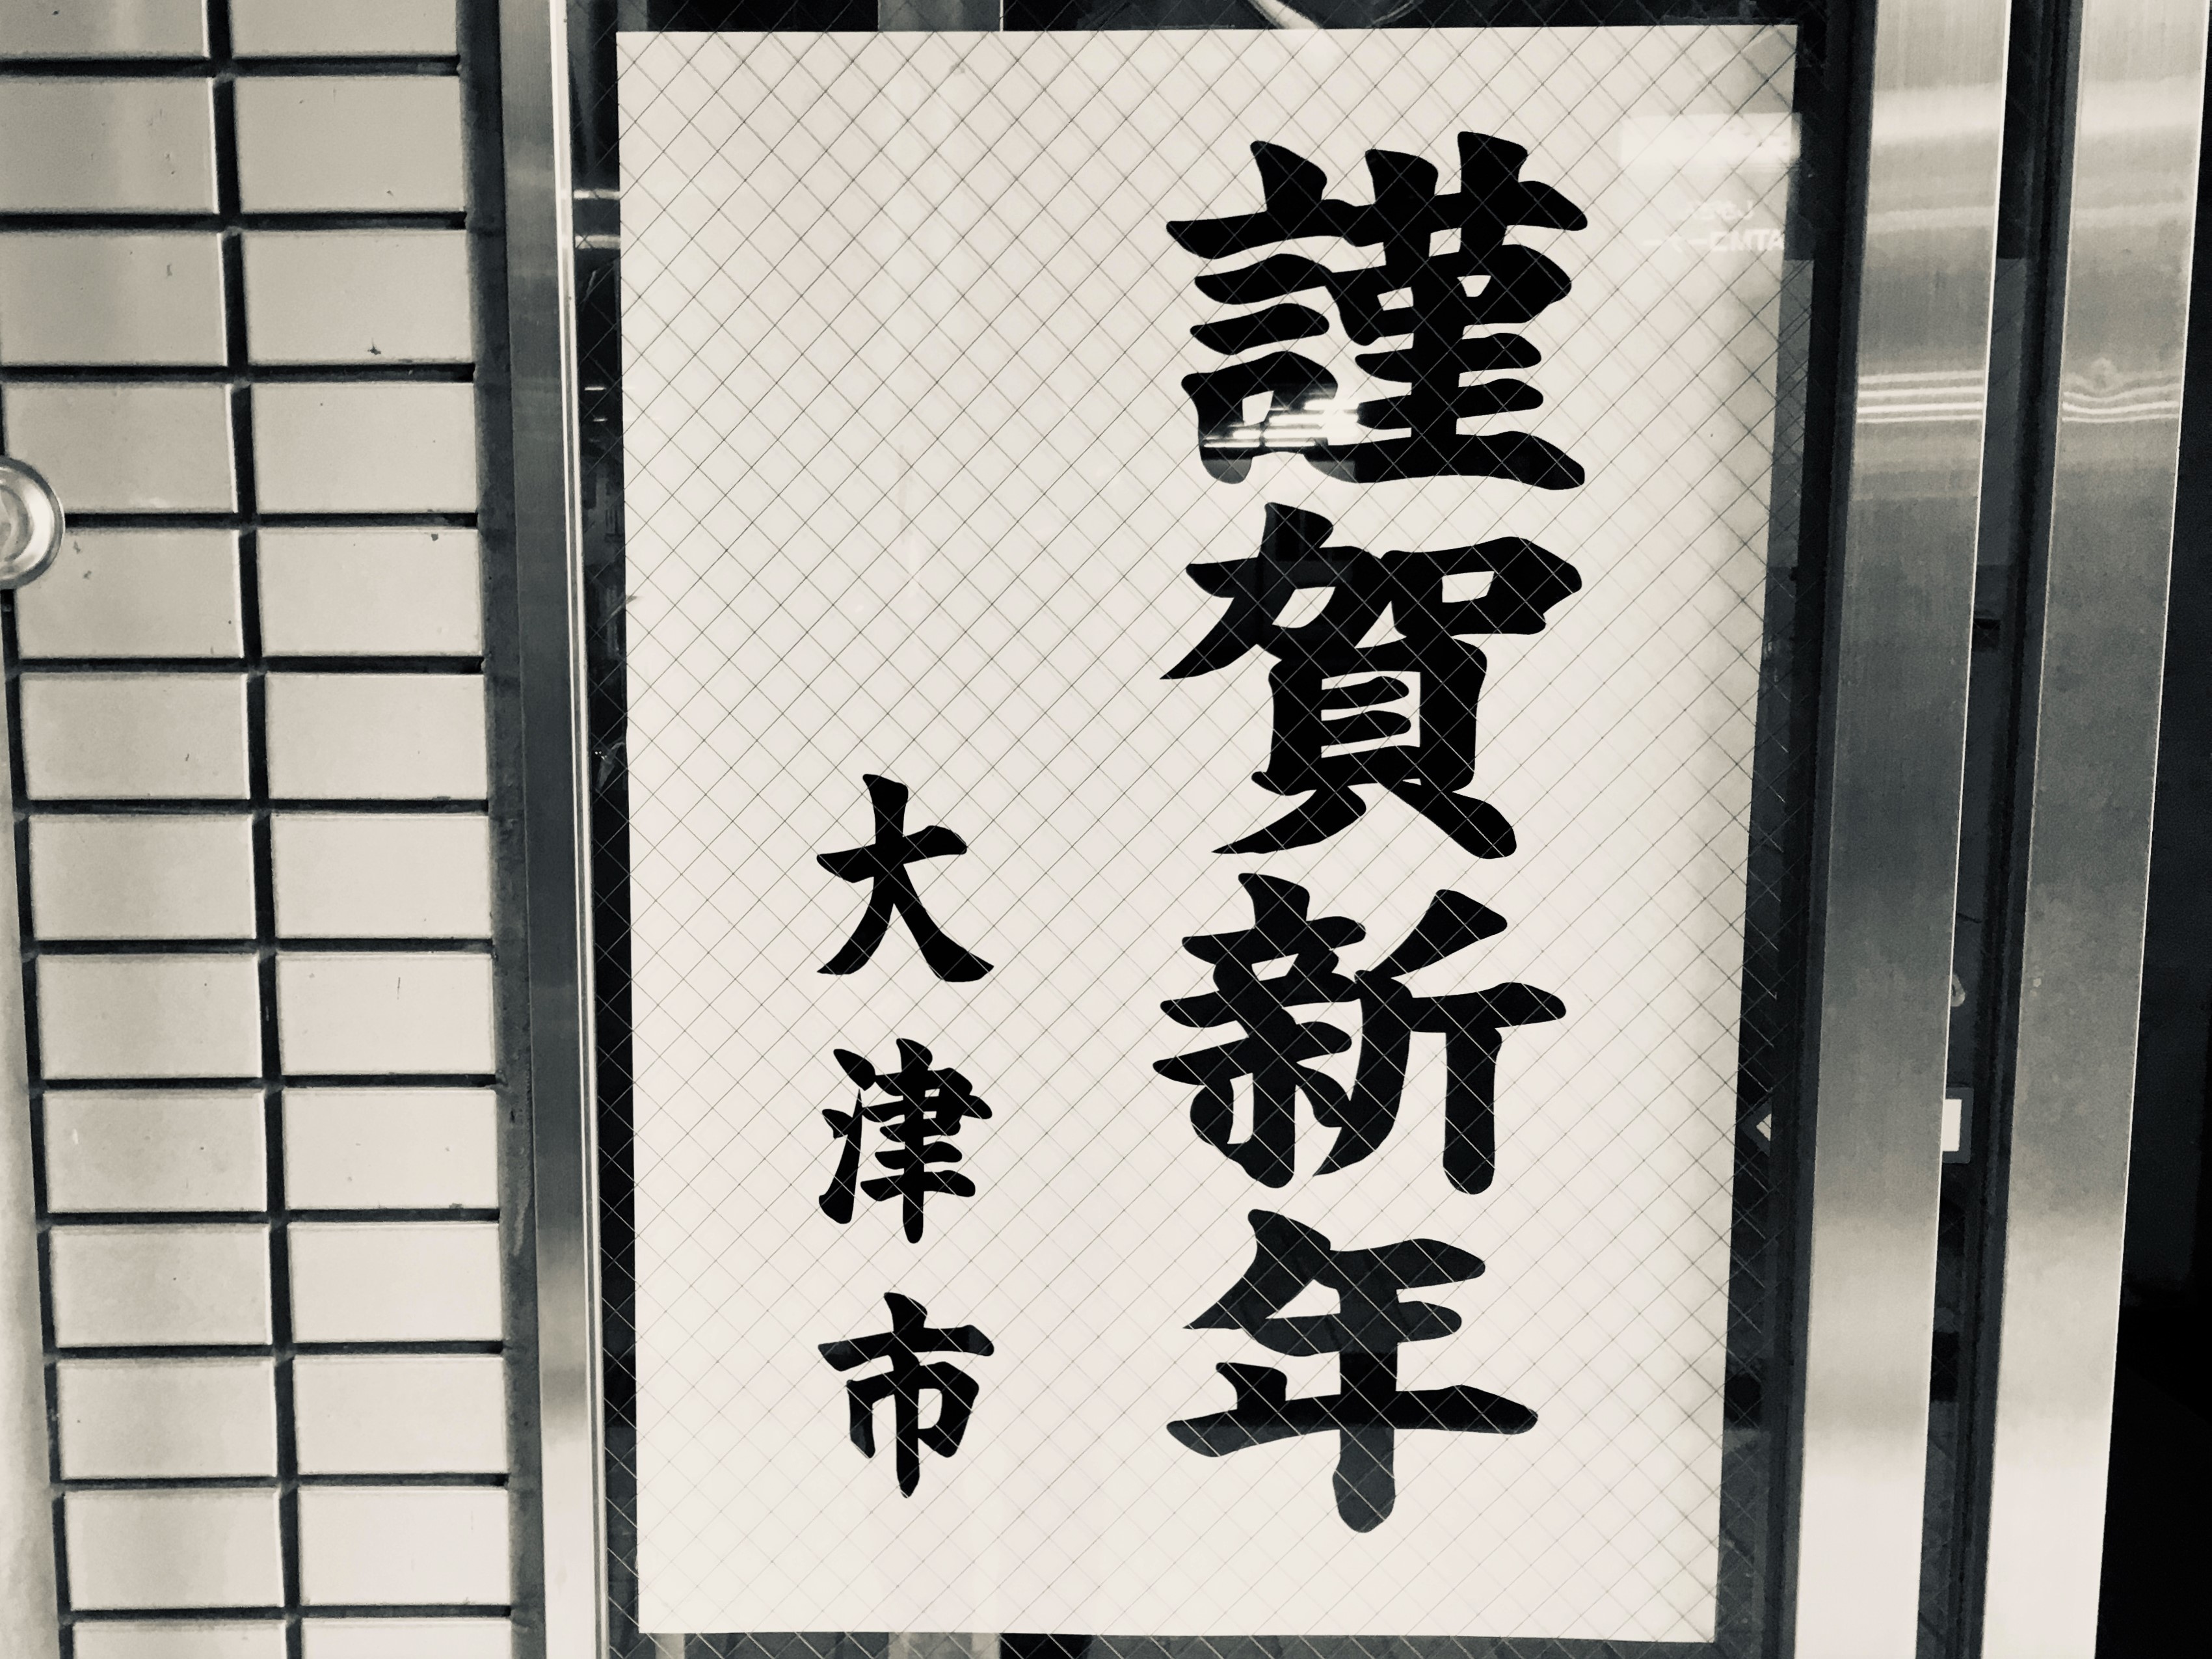 謹賀新年
大津市